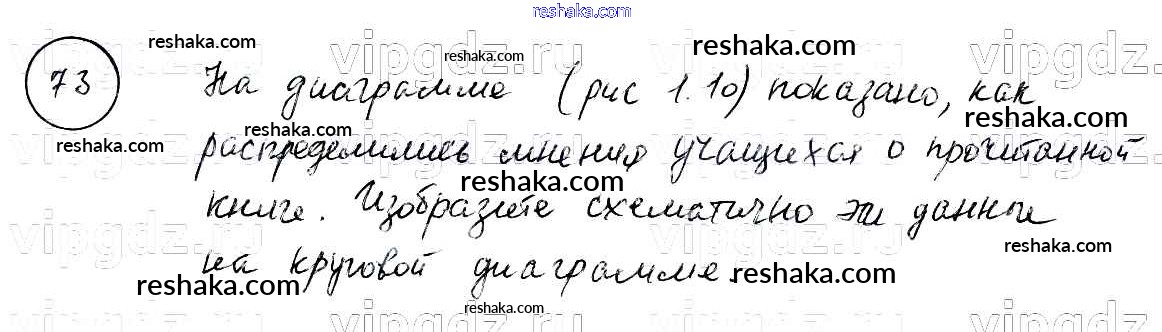 reshaka.com
vipgdz.ru reshaka.com vipgdz.ru reshaka.com vipgdz.ru
73 На диаграмме (рис 1.10) показано, как
reshaka.com reshaka.com reshaka.com
распределились мнения учащихся о прочитанной
reshaka.com reshaka.com
книге. Изобразите схематично эти данные
vipgdz.ru reshaka.com vipgdz.ru reshaka.com vipgdz.ru
на круговой диаграмме.
reshaka.com reshaka.com reshaka.com
vipgdz.ru vipgdz.ru vipgdz.ru